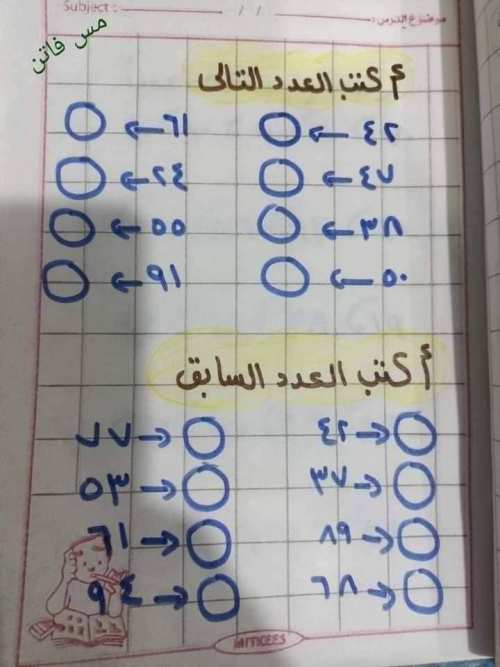 Subject :
/ /
موضوع الدرس :
مس فاتن
أكتب العدد التالى
٤٢ ← ٦١ ←
٤٧ ← ٢٤ ←
٣٨ ← ٥٥ ←
٥٠ ← ٩١ ←
أكتب العدد السابق
→ ٤٢ → ٧٧
→ ٣٧ → ٥٣
→ ٨٩ → ٦١
→ ٦٨ → ٩٤